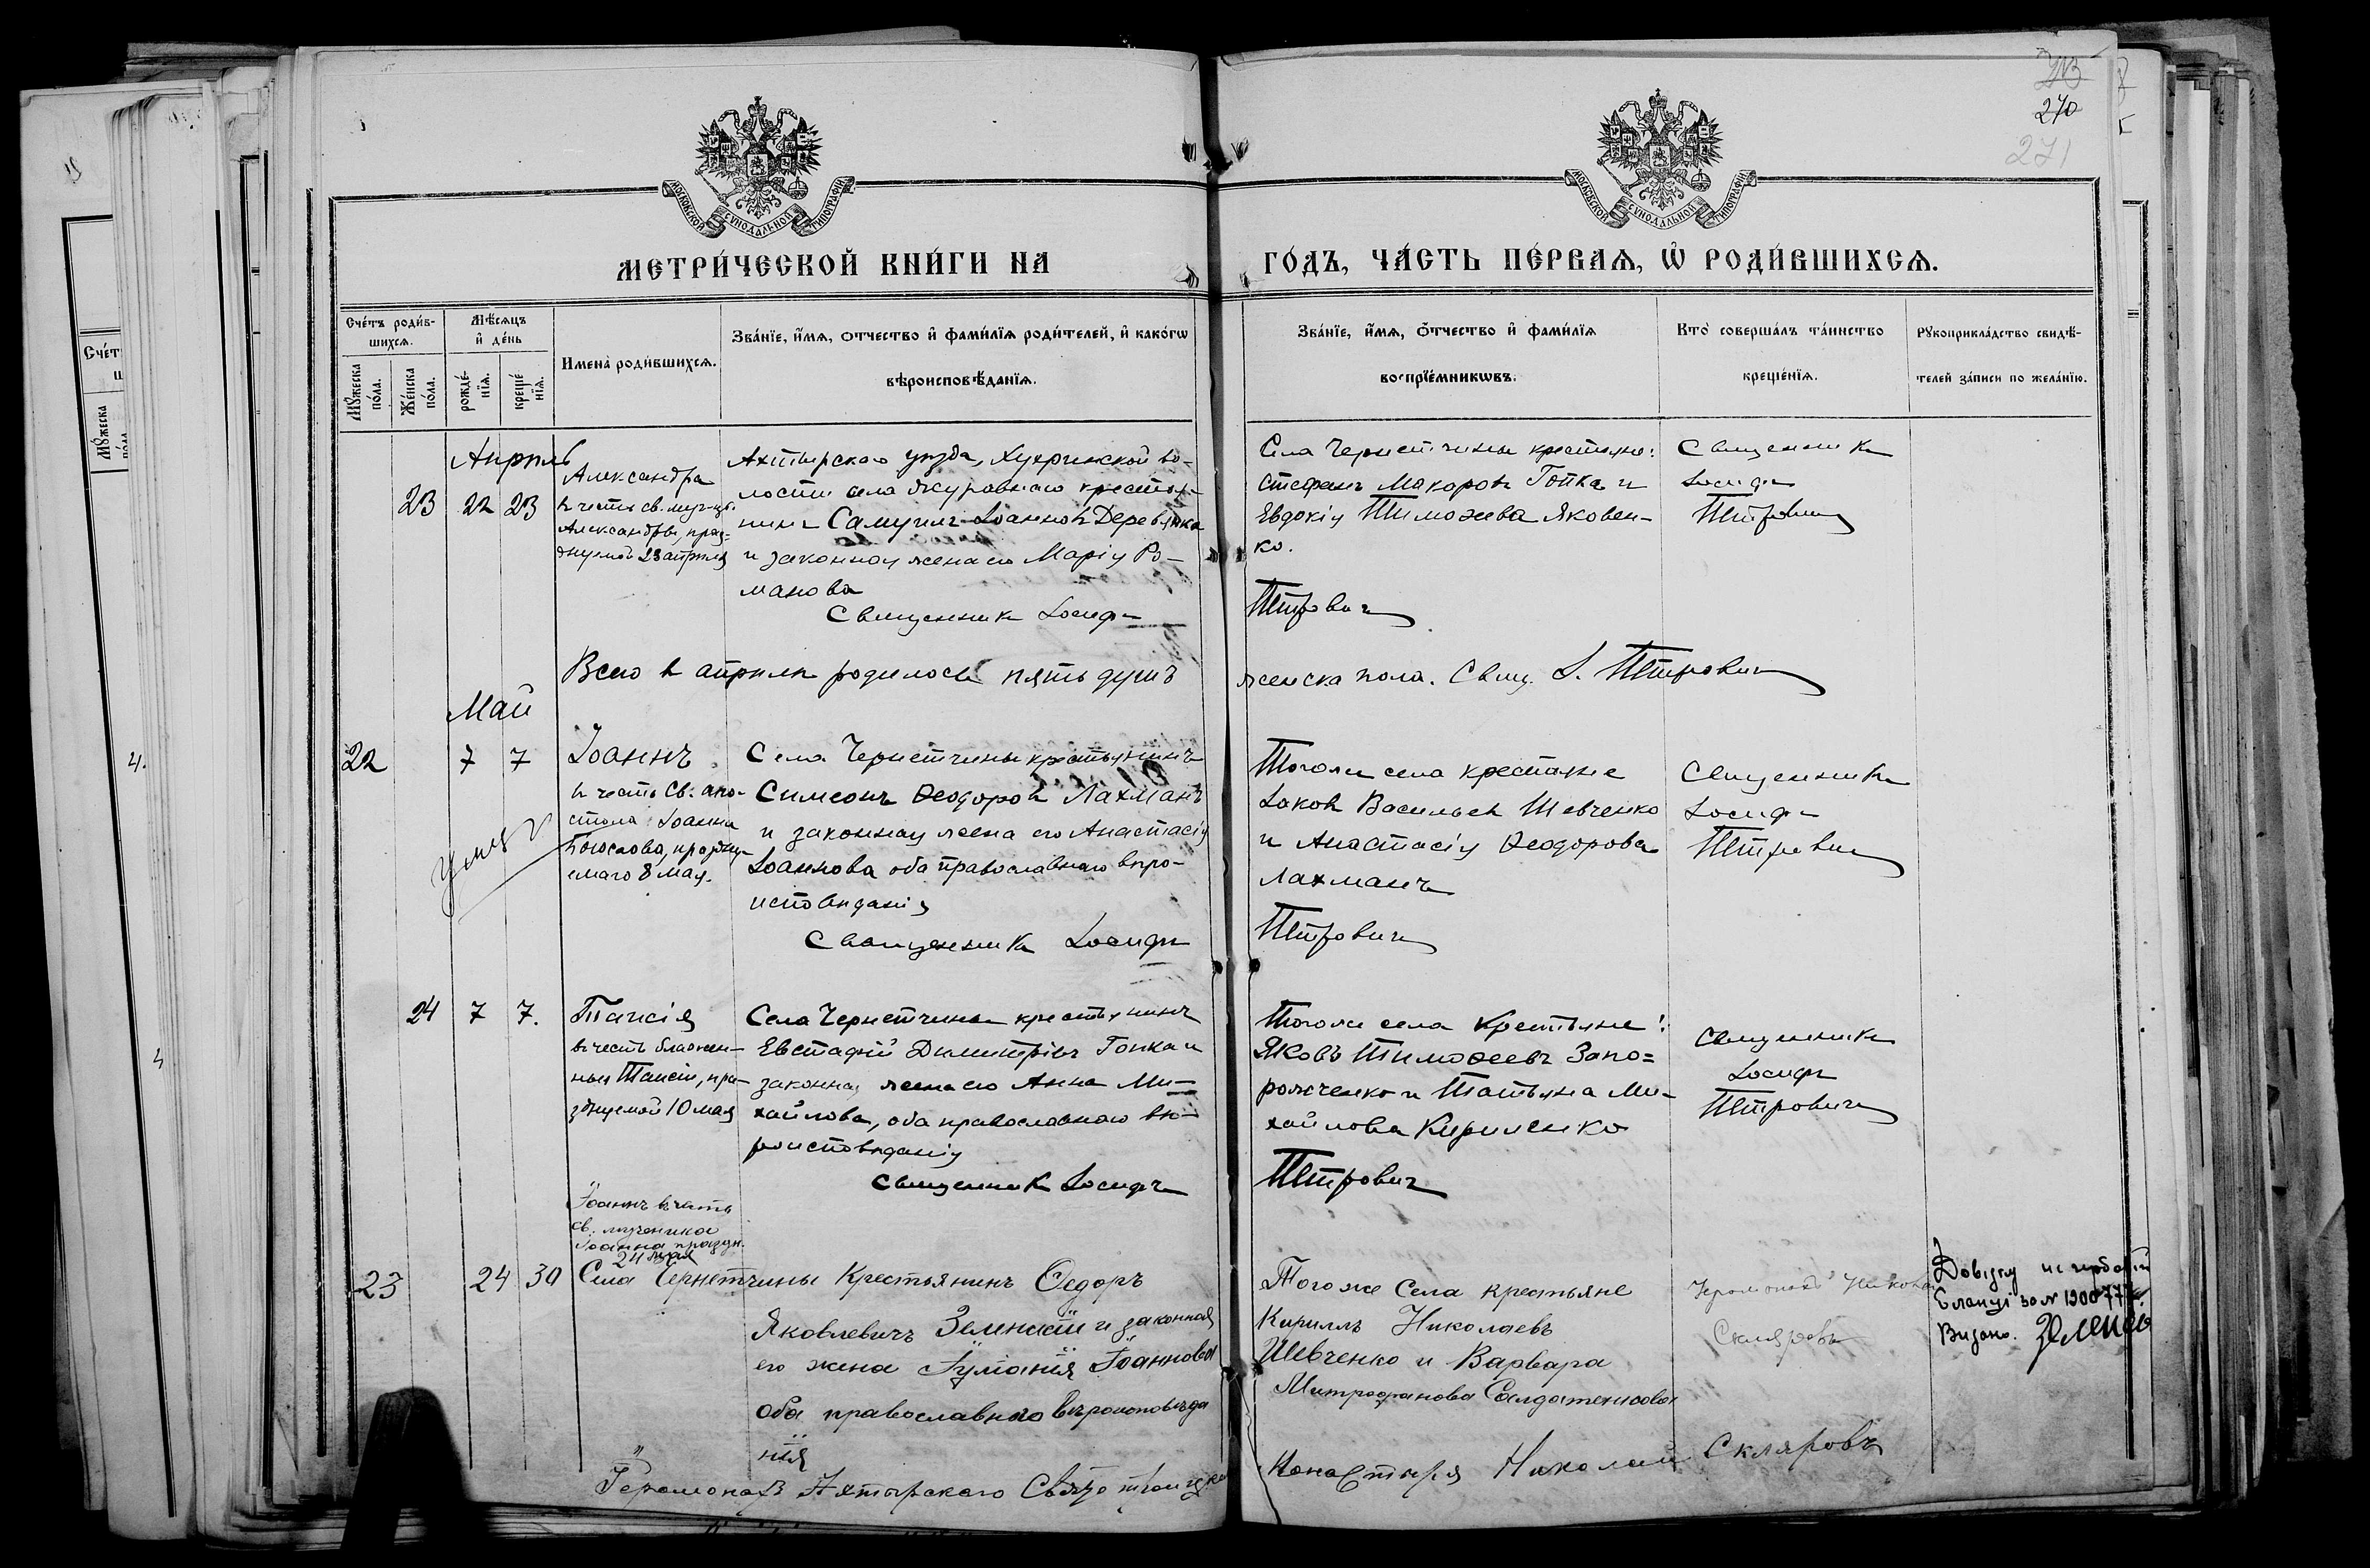 270
271
МОСКОВСКОЙ СѴНОДАЛЬНОЙ ТИПОГРАФІИ
МОСКОВСКОЙ СѴНОДАЛЬНОЙ ТИПОГРАФІИ
МЕТРИ́ЧЕСКОЙ КНИ́ГИ НА
ГО́ДЪ, ЧА́СТЬ ПЕ́РВАЯ, Ѡ҆ РОДИ́ВШИХСЯ.
Сче́тъ роди́в-
шихся.
Мꙋ́жеска по́ла.
Же́нска по́ла.
Мѣ́сяцъ и҆ де́нь
рожде́-
нїя.
креще́
нїя.
И҆мена̀ роди́вшихся.
Зва́нїе, и҆́мя, ѻ҆́тчество и҆ фами́лїя роди́телей, и҆ како́гѡ
вѣроисповѣ́данїя.
Зва́нїе, и҆́мя, ѻ҆́тчество и҆ фами́лїя
воспрїе́мникѡвъ.
Кто̀ соверша́лъ та́инство
креще́нїя.
Рꙋкоприкла́дство свидѣ́-
телей за́писи по жела́нїю.
Апрель
23 22 23
Александра
въ честь св. муч-цы
Александры, праз-
днуемой 23 апрѣля
Ахтырскаго уѣзда, Хухринской во-
лости села Журавнаго крестья-
нинъ Самуилъ Іоанновъ Деревянка
и законная жена его Марія Ро-
манова
Священникъ Іосифъ
Села Чернетчины крестьяне:
Стефанъ Макаровъ Гопка и
Евдокія Тимоѳеева Яковен-
ко.
Петровичъ
Священникъ
Іосифъ
Петровичъ
Всего въ апрѣлѣ родилось пять душъ
женска пола. Свящ. І. Петровичъ
Май
22 7 7
Іоаннъ
въ честь св. апо-
стола Іоанна
Богослова, праздну-
емаго 8 мая.
умеръ
Села Чернетчины крестьянинъ
Симеонъ Ѳеодоровъ Лахманъ
и законная жена его Анастасія
Іоаннова оба православнаго вѣро-
исповѣданія
Священникъ Іосифъ
Тогоже села крестьяне
Іаковъ Васильевъ Шевченко
и Анастасія Ѳеодорова
Лахманъ
Петровичъ
Священникъ
Іосифъ
Петровичъ
24 7 7.
Таисія
въ честь блажен-
ныя Таисіи, пра-
зднуемой 10 мая
Села Чернетчины крестьянинъ
Евстафій Димитріевъ Гопка и
законная жена его Анна Ми-
хайлова, оба православнаго вѣ-
роисповѣданія
Священникъ Іосифъ
Тогоже села крестьяне:
Яковъ Тимоѳеевъ Запо-
рожченко и Татьяна Ми-
хайлова Кириленко
Петровичъ
Священникъ
Іосифъ
Петровичъ
Іоаннъ въ честь
св. мученика
Іоанна праздн.
24 мая
23 24 30
Села Чернетчины Крестьянинъ Ѳедоръ
Яковлевичъ Зеленскій и законная
его жена Іуліанія Іоаннова
оба православнаго вѣроисповѣда
нія
Іеромонахъ Ахтырскаго Свято троицкаго
Тогоже Села крестьяне
Кириллъ Николаевъ
Шевченко и Варвара
Митрофанова Солдатенкова
Монастыря Николай Скляровъ
Іеромонахъ Николай
Скляровъ
Довідку
бланці за №
Видано.